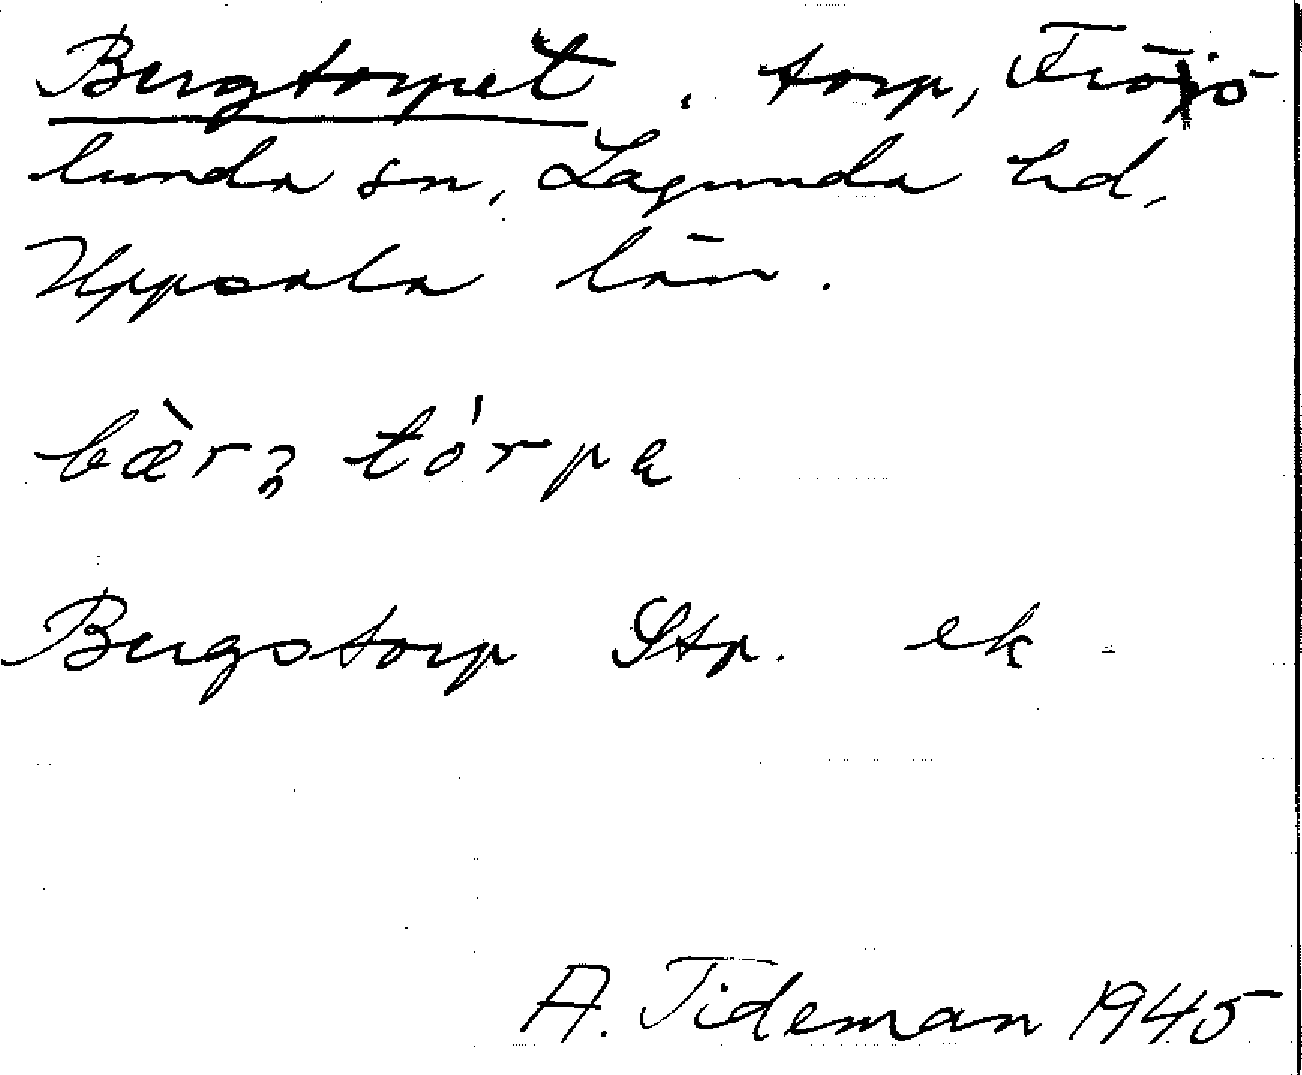 Bergtorpet, torp, Fröjs-
lunda sn, Lagunda hd,
Uppsala län.
bærʒ tórpe
Bergstorp Stp. ek.
A. Tideman 1945